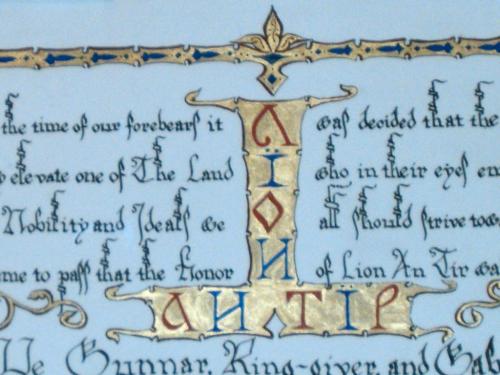 the time of our forebears it was decided that the
elevate one of The Land who in their eyes
Nobility and Ideals we all should strive
to pass that the Honor of Lion An Tir
LION
AN TIR
Gunnar, Ring-giver, and